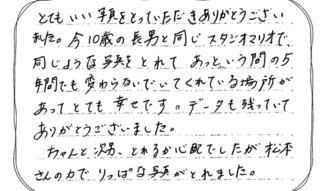 とてもいい写真をとっていただきありがとうござい
ました。今10歳の長男と同じスタジオマリオで、
同じような写真をとれて あっという間の5
年間でも変わらないでいてくれている場所が
あってとても幸せです。データも残っていて
ありがとうございました。
ちゃんと 、とれるか心配でしたが 松本
さんの力で りっぱな写真がとれました。